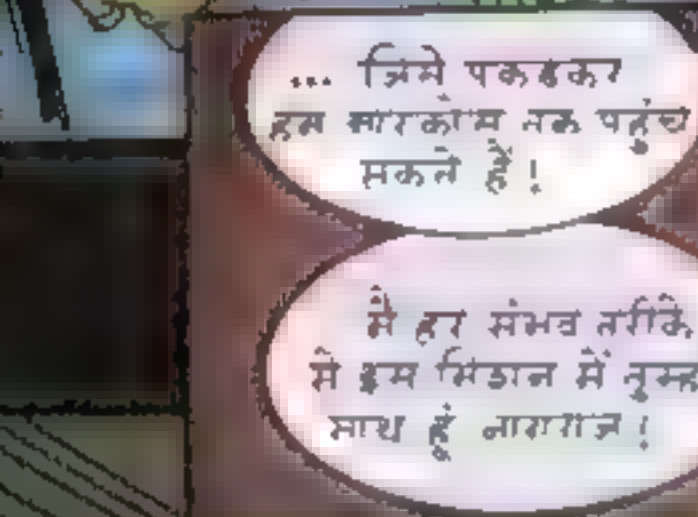 ... जिसे पकडकर
हम मारकोस तक पहुंच
सकते हैं!
मैं हर संभव तरीके
से इस मिशन में तुम्हा
साथ हूं नागराज!